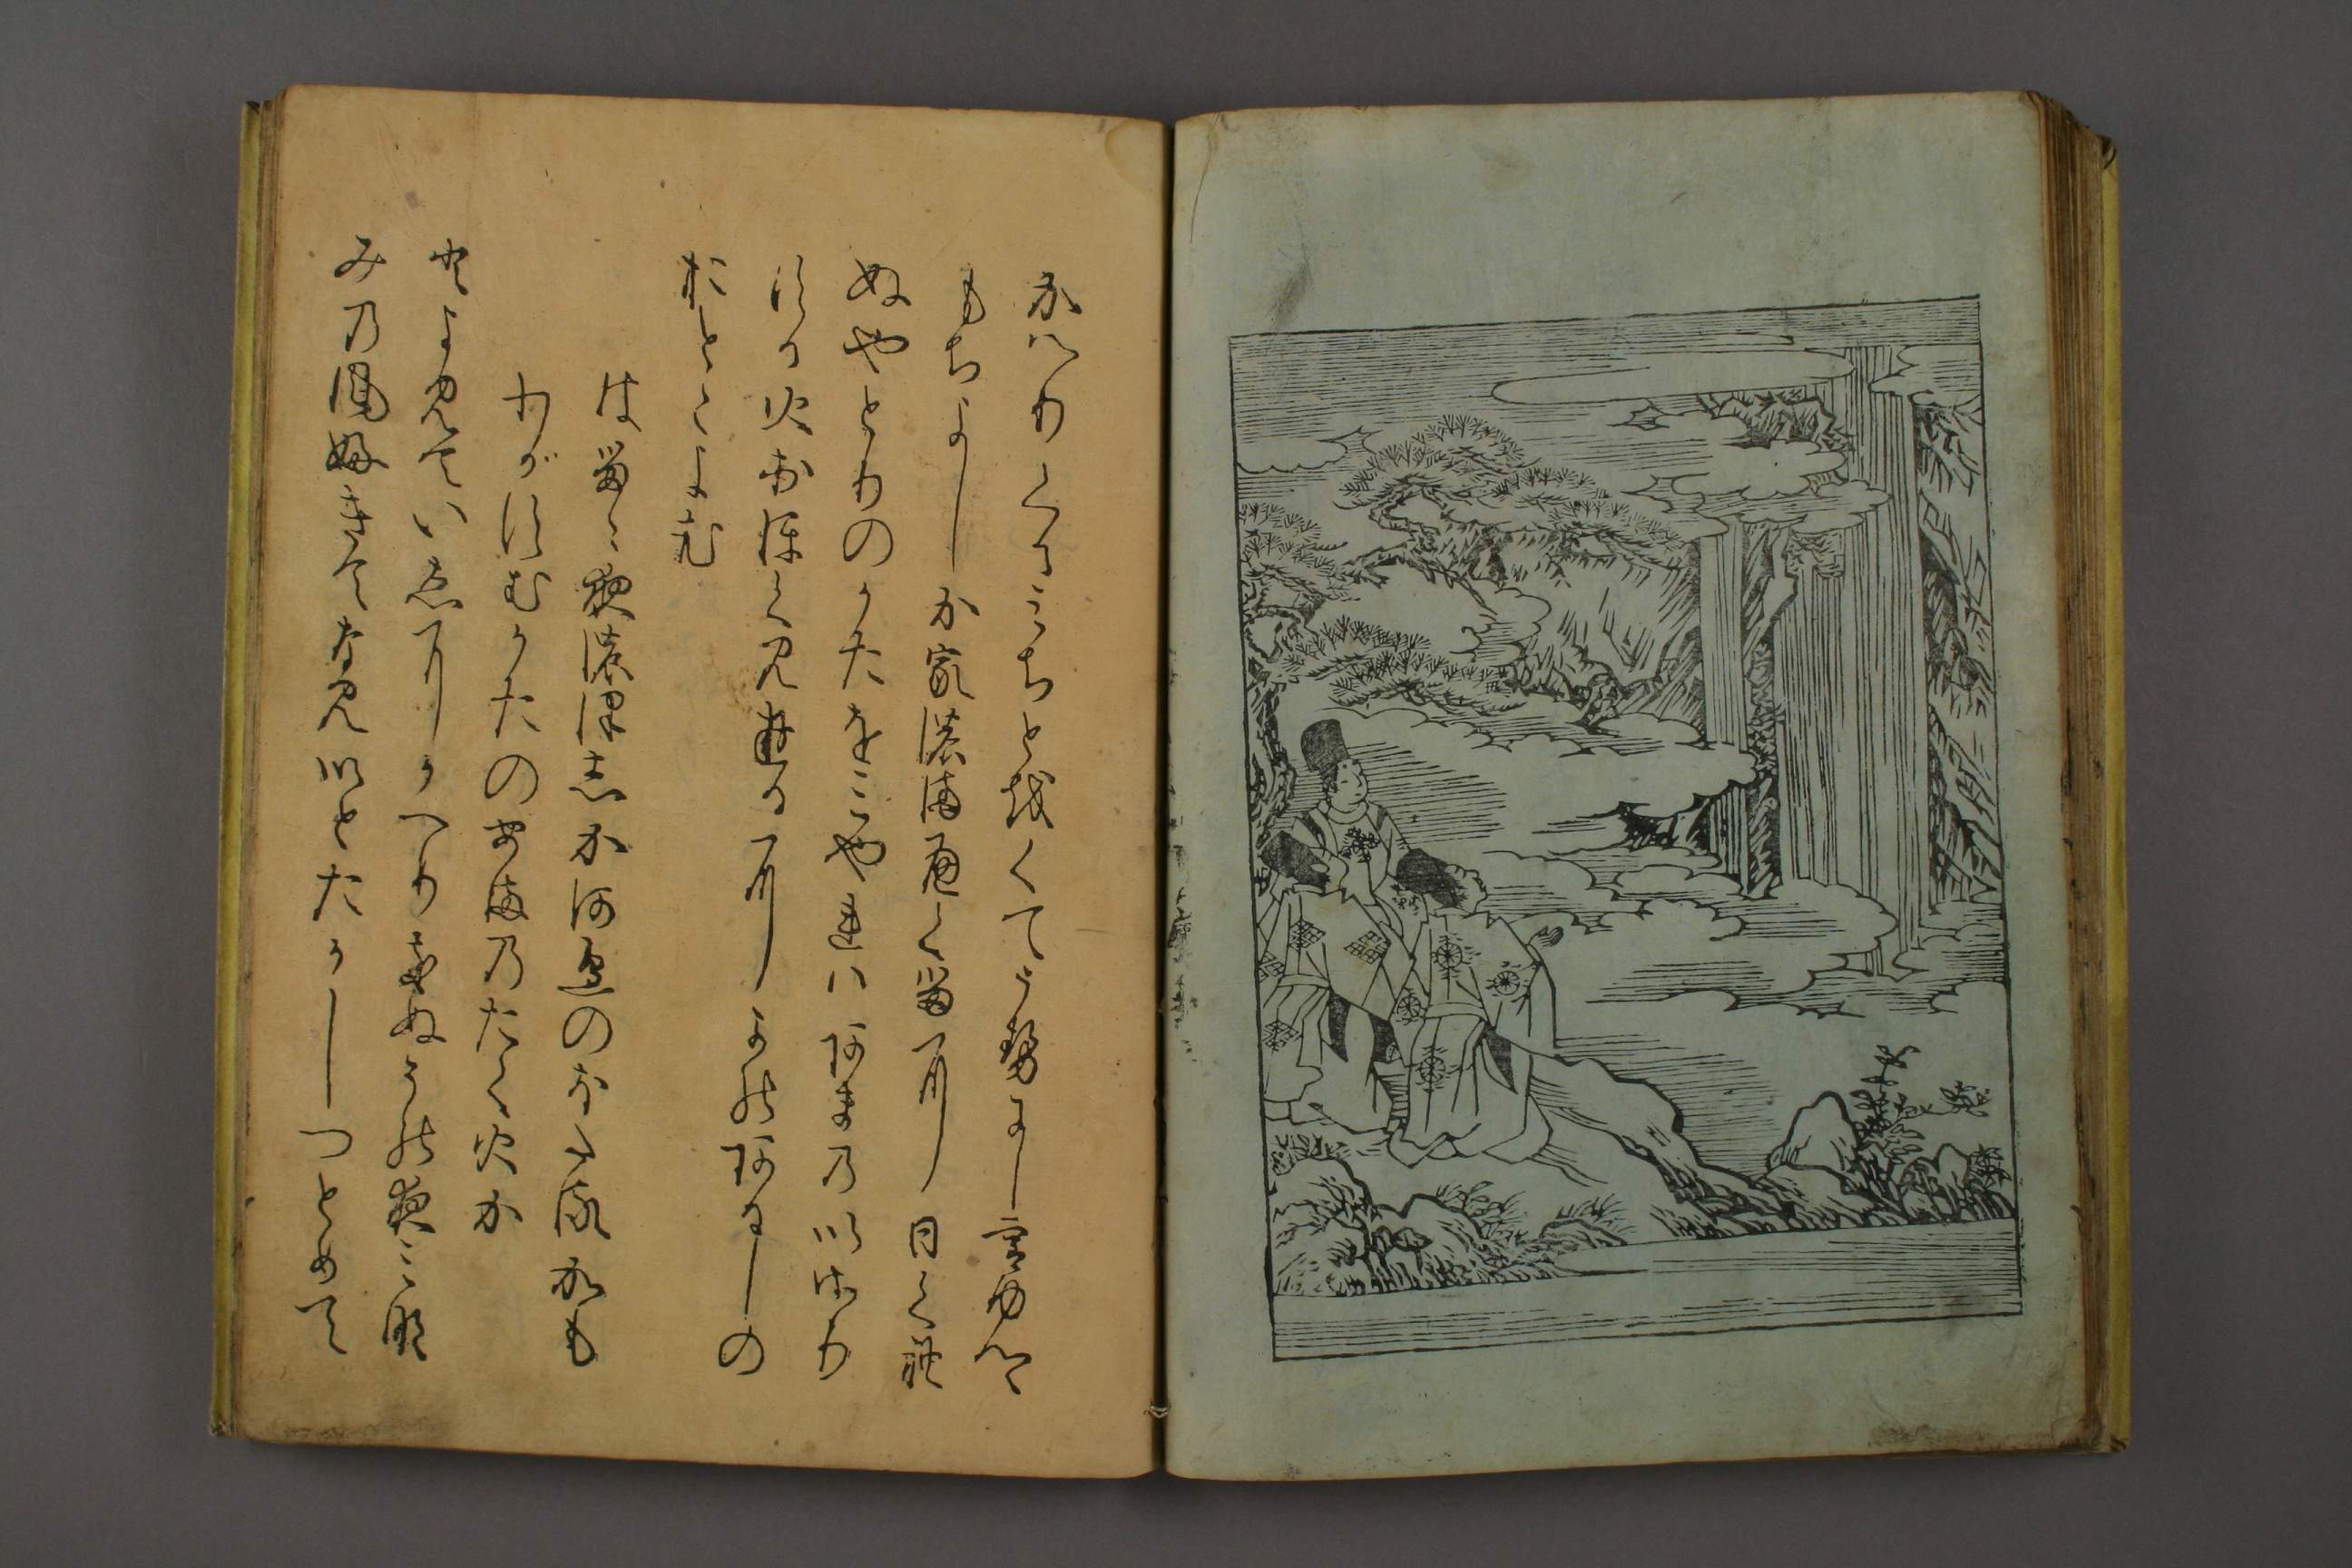 かへりくるみちとをくてうせにし宮内卿
もちよしか家のまへくるに日くれ
ぬやとりのかたをみやれはあまのいさり
する火おほく見ゆるにかのあるしの
おとこよむ
はるゝ夜のほしか河邊のほたるかも
わがすむかたのあまのたく火か
とよみていゑにかへりきぬその夜みな
みの風ふきてなみいとたかしつとめて